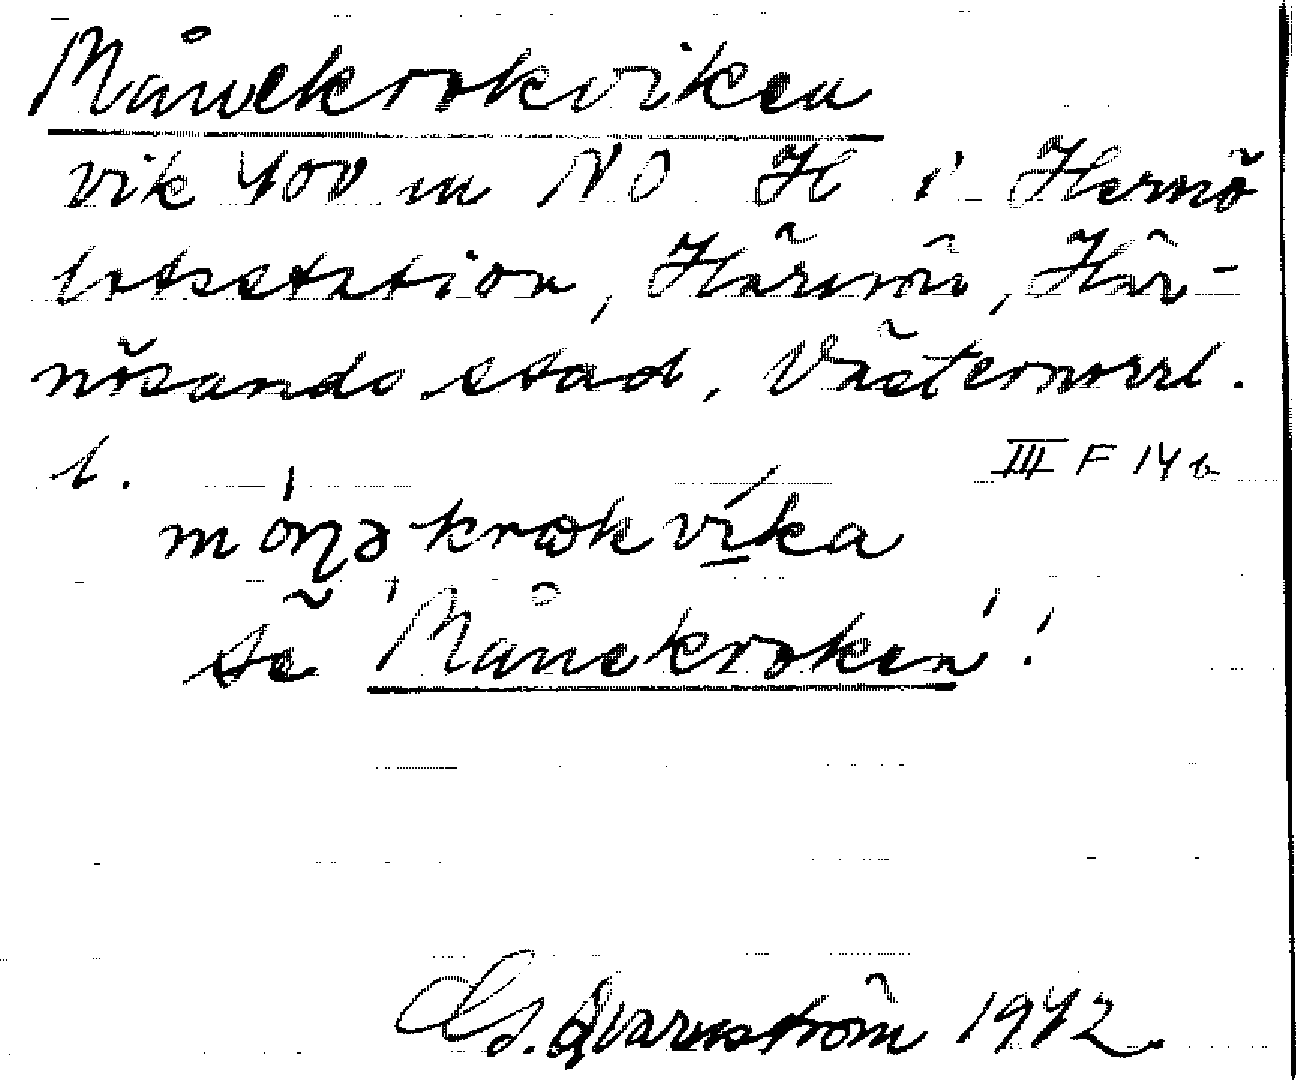 Månekrokviken
vik 400 m NO H i Hernö
lotsstation, Härnön, Här-
nösands stad, Västernorrl.
l.
III F 14 b
mónəkrokvika
se 'Månekroken'!
Qvarnström 1942.